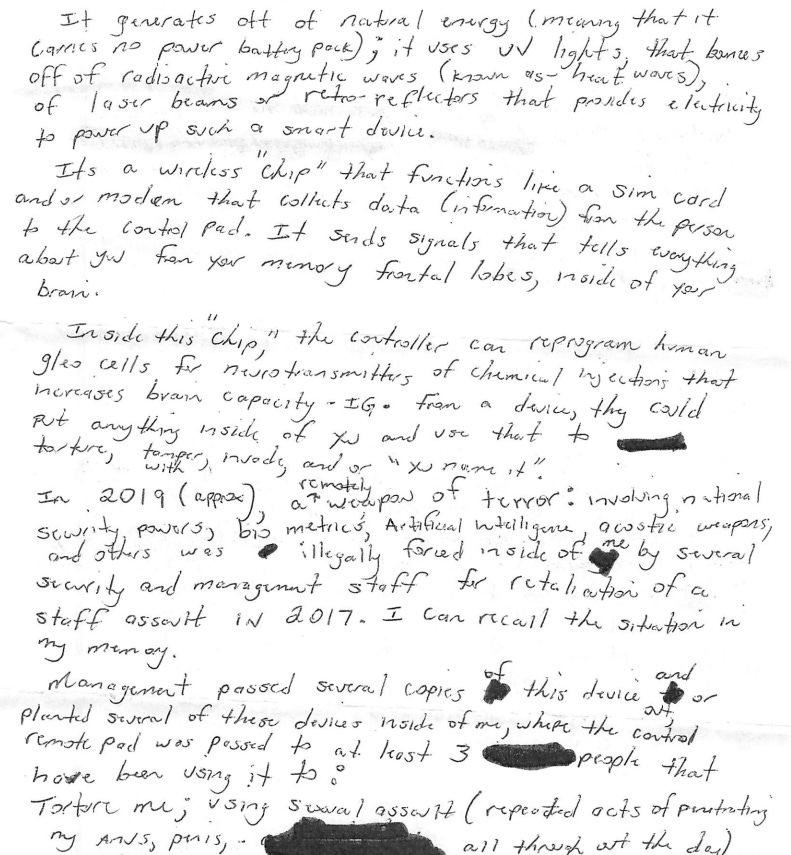 It generates off of natural energy (meaning that it
carries no power battery pack); it uses UV lights, that bounces
off of radioactive magnetic waves (known as- heat waves),
of laser beams or retro-reflectors that provides electricity
to power up such a smart device.
Its a wireless "chip" that functions like a sim card
and/or modem that collects data (information) from the person
to the control pad. It sends signals that tells everything
about you from your memory frontal lobes, inside of your
brain.
Inside this "chip," the controller can reprogram human
gleo cells for neurotransmitters of chemical injections that
increases brain capacity - IG. From a device, they could
put anything inside of you and use that to
torture, tamper with, invade, and or "you name it".
In 2019 (approx), a remotely weapon of terror: involving national
security powers, bio metrics, Artificial Intelligence, acostic weapons,
and others was illegally forced inside of me by several
security and management staff for retaliation of a
staff assault in 2017. I can recall the situation in
my memory.
Management passed several copies of this device and or
planted several of these devices inside of me, where the control
remote pad was passed to at least 3 people that
have been using it to:
Torture me; using sexual assault (repeated acts of penetrating
my anus, penis, - all through out the day)